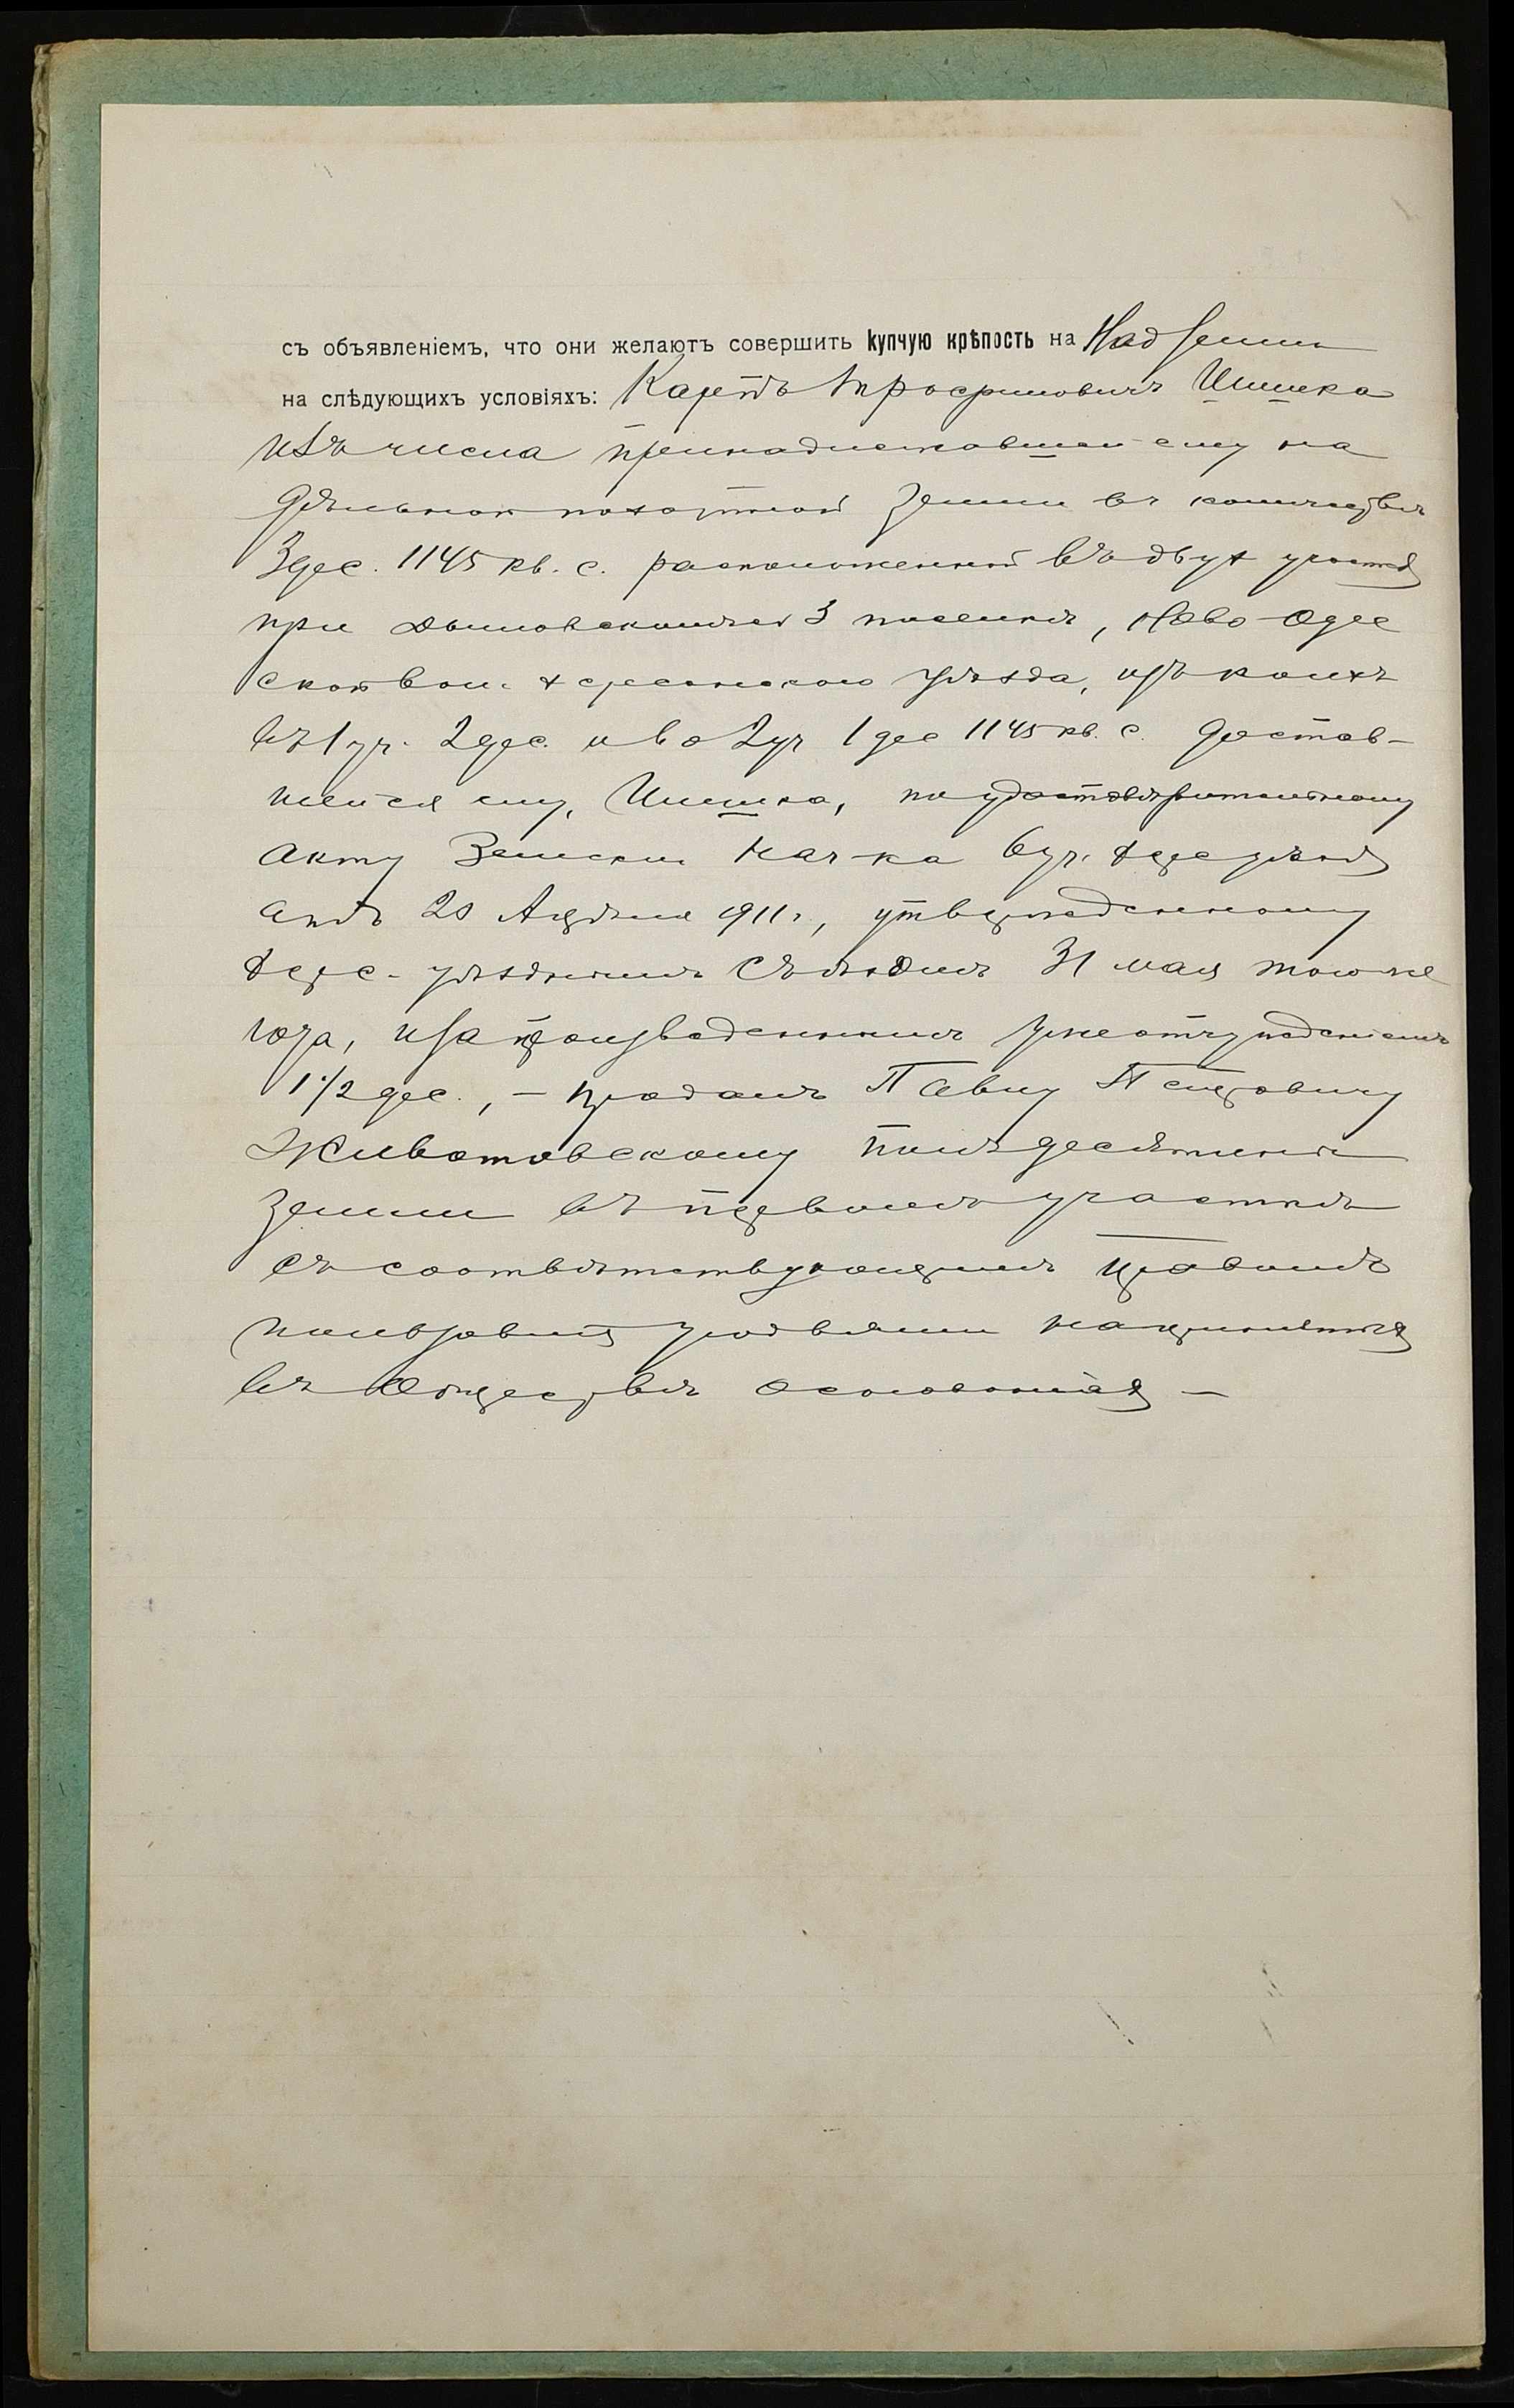 съ объявленіемъ, что они желаютъ совершить купчую крѣпость на Над земли
на слѣдующихъ условіяхъ: Карпъ Трофимовичъ Шишка
изъ числа принадлежавшей ему на
дѣльной пахотной земли въ количествѣ
3 дес. 1145 кв. с. расположенной въ двух участк
при поселкѣ, Ново-Одес
ской вол. Херсонского уѣзда, изъ коихъ
въ 1 уч. 2 дес. и во 2 уч 1 дес 1145 кв. с. достав-
шейся ему, Шишка, по удостовѣрительному
акту Земскаго Нач-ка 6 уч. Херс уѣзда
20 Апрѣля 1911 г., утвержденному
Херс. уѣзднымъ Съѣздомъ 31 мая того же
года, и за произведеннымъ уже отчужденіемъ
1 1/2 дес., - продалъ Павлу Петровичу
Животовскому полъ десятины
земли въ первомъ участкѣ
съ соотвѣтствующимъ правомъ
пользованія угодьями
въ Обществѣ основанія -